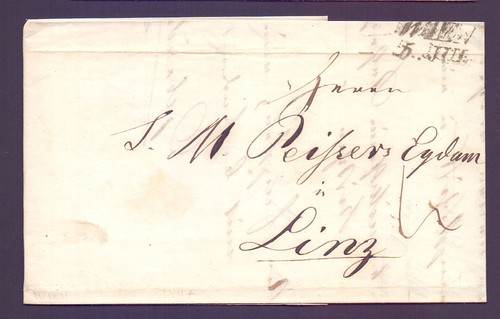 WIEN
5. JUL.
Herrn
S. M. Peißers Eydam
in
Linz